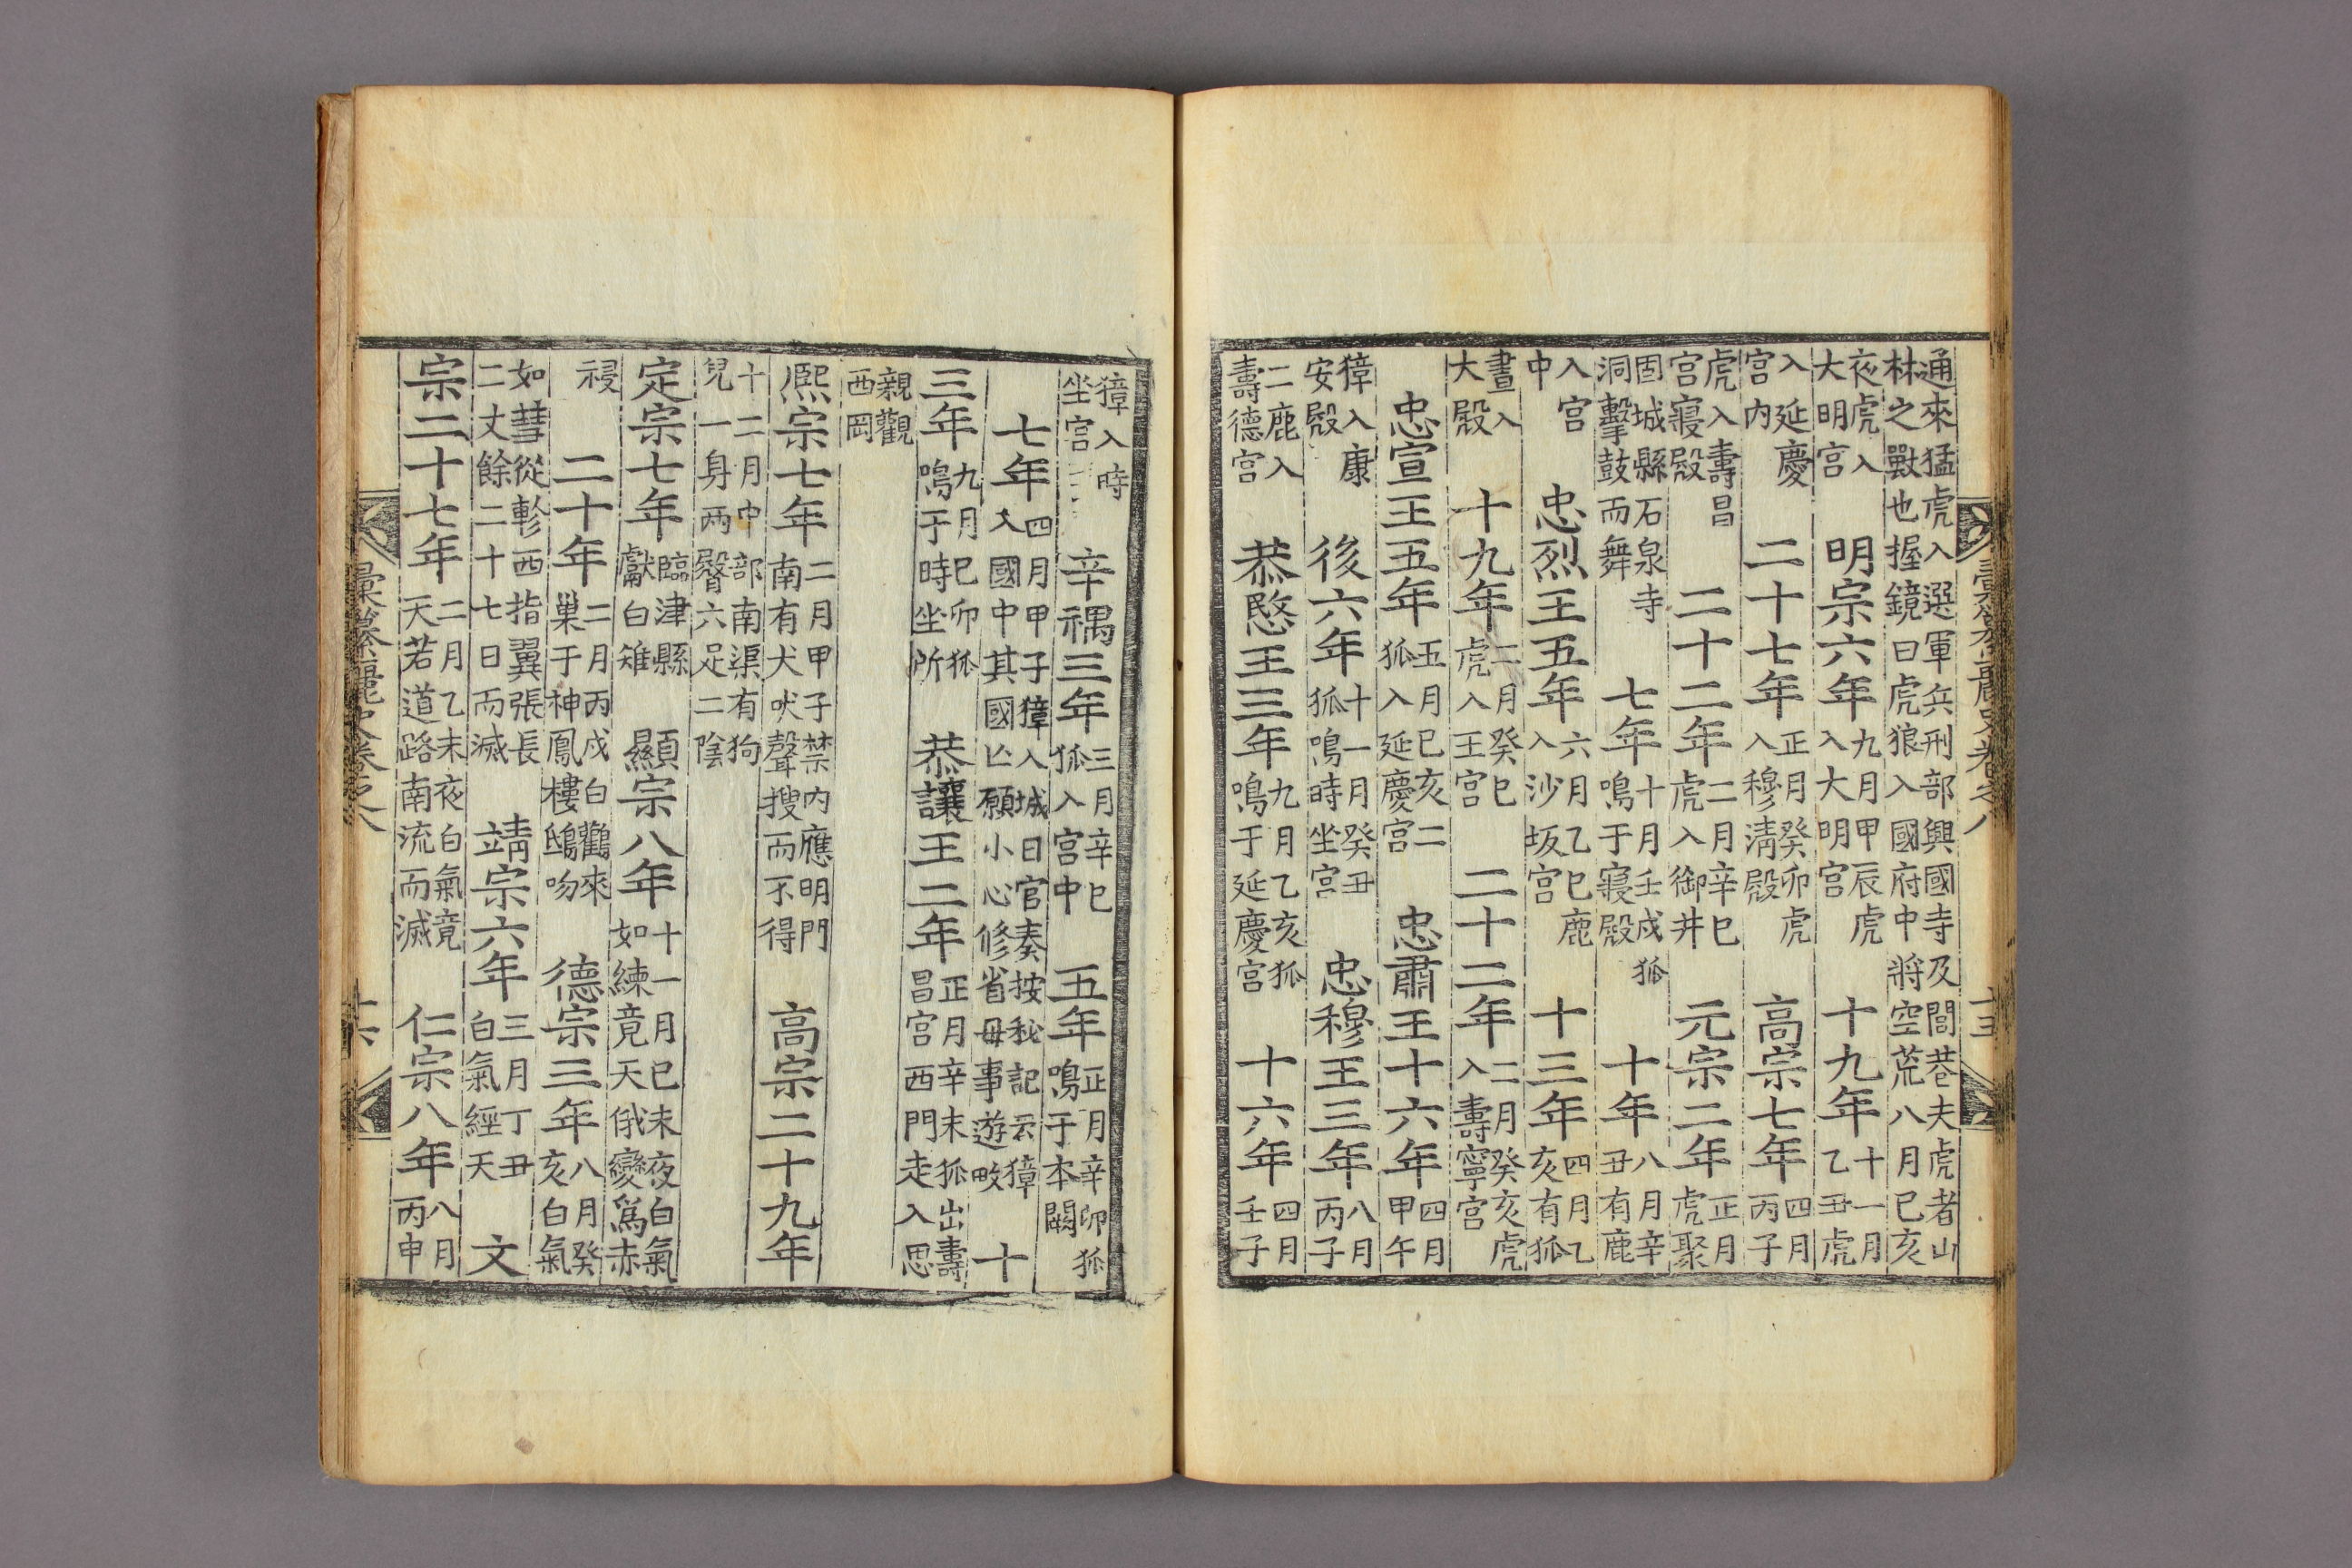 彙纂麗史卷之八 十五
通來猛虎入選軍兵刑部興國寺及閭巷夫虎者山林之獸也握鏡曰虎狼入國府中將空荒八月己亥
夜虎入大明宮 明宗六年九月甲辰虎入大明宮 十九年十一月乙丑虎
入延慶宮内 二十七年正月癸卯虎入穆淸殿 高宗七年四月丙子
虎入壽昌宮寢殿 二十二年二月辛巳虎入御井 元宗二年正月虎聚
固城縣石泉寺洞擊鼓而舞 七年十月壬戌狐鳴于寢殿 十年八月辛丑有鹿
入宮中 忠烈王五年六月乙巳鹿入沙坂宮 十三年四月乙亥有狐
晝入大殿 十九年二月癸巳虎入王宮 二十二年二月癸亥虎入壽寧宮
忠宣王五年五月己亥二狐入延慶宮 忠肅王十六年四月甲午
獐入康安殿 後六年十一月癸丑狐鳴時坐宮 忠穆王三年八月丙子
二鹿入壽德宮 恭愍王三年九月乙亥狐鳴于延慶宮 十六年四月壬子
獐入時坐宮 辛禑三年三月辛巳狐入宮中 五年正月辛卯狐鳴于本闕
七年四月甲子獐入城日官奏按秘記云獐入國中其國亡願小心修省毋事遊畋 十
三年九月己卯狐鳴于時坐所 恭讓王二年正月辛未狐出壽昌宮西門走入思
親觀西岡
熙宗七年二月甲子禁内應明門南有犬吠聲搜而不得 高宗二十九年
十二月中部南渠有狗兒一身兩臀六足二陰
定宗七年臨津縣獻白雉 顯宗八年十一月己未夜白氣如練竟天俄變爲赤
祲 二十年二月丙戌白鸛來巢于神鳳樓鴟吻 德宗三年八月癸亥白氣
如彗從軫西指翼張長二丈餘二十七日而滅 靖宗六年三月丁丑白氣經天 文
宗二十七年二月乙未夜白氣竟天若道路南流而滅 仁宗八年八月丙申
彙纂麗史卷之八 十六